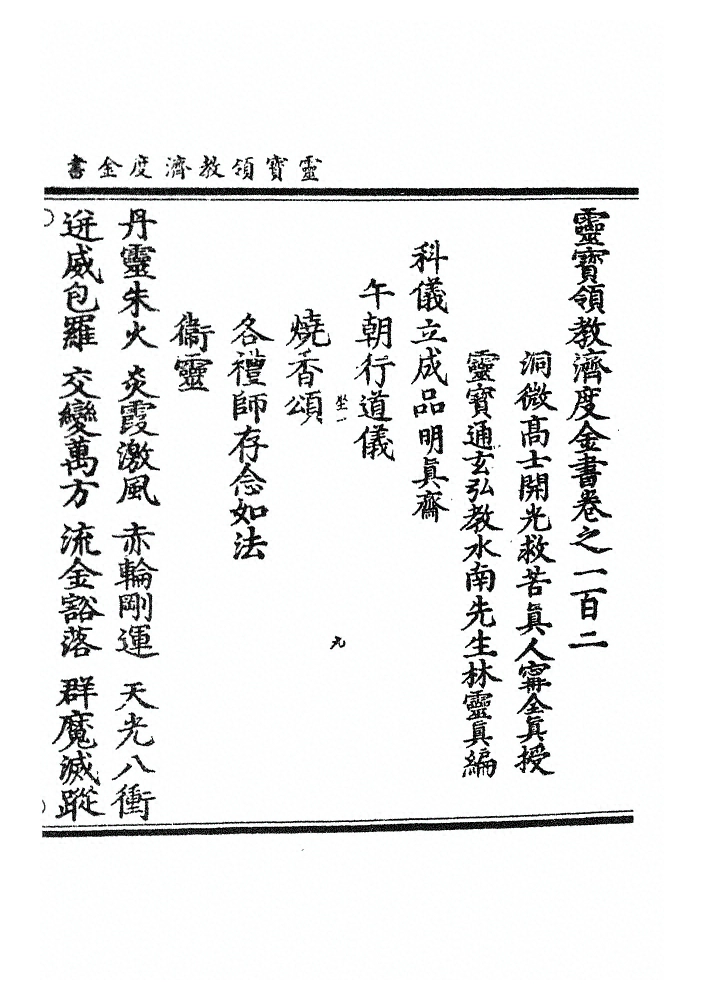 靈寶領教濟度金書
靈寶領教濟度金書卷之一百二
洞微高士開光救苦眞人寗全眞授
靈寶通玄弘教水南先生林靈眞編
科儀立成品明眞齋
午朝行道儀
坐一
九
燒香頌
各禮師存念如法
衞靈
丹靈朱火 炎霞激風 赤輪剛運 天光八衝
迸威包羅 交變萬方 流金豁落 群魔滅蹤